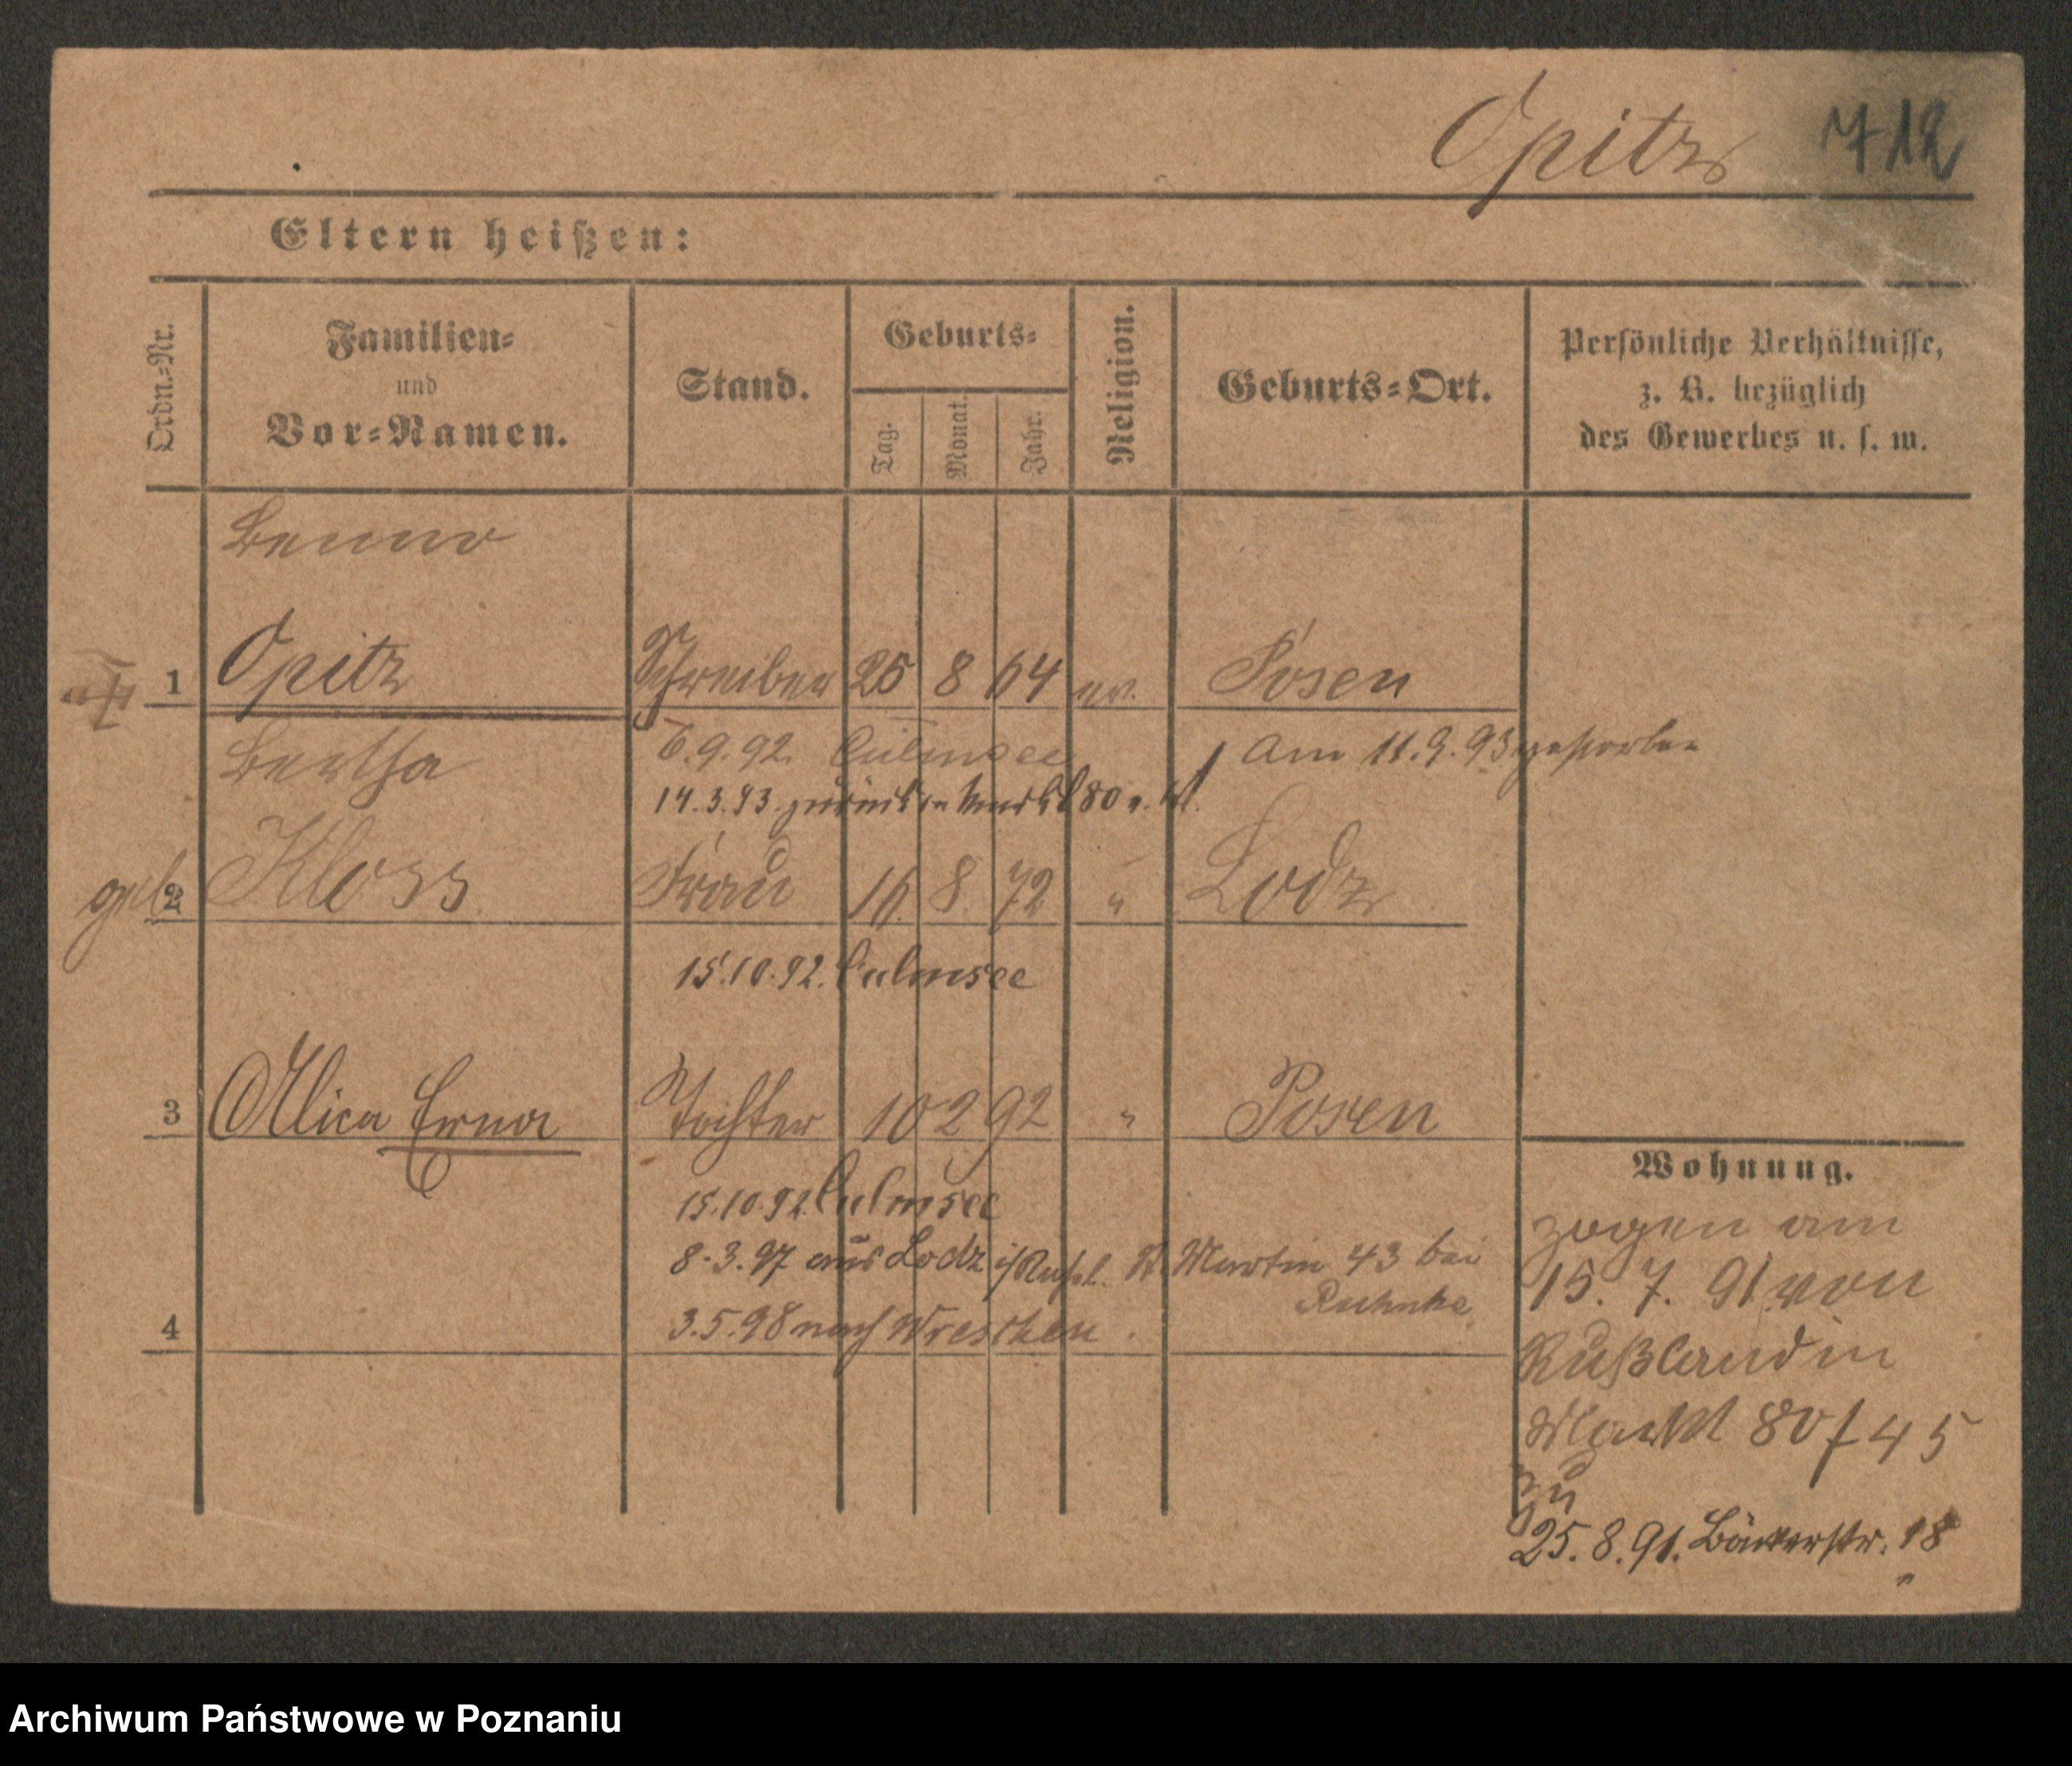 Opitz 712
Eltern heißen:
Ordn.-Nr.
Familien-
und
Vor-Namen.
Stand.
Geburts-
Tag.
Monat.
Jahr.
Religion.
Geburts-Ort.
Persönliche Verhältnisse,
z. B. bezüglich
des Gewerbes u. s. w.
Benno
1 Opitz Schreiber 25 8 64 ev. Posen
Bertha 6.9.92. Culmsee Am 11.9.93 gestorben
14.3.93. zurück in Markt 80 v. W.
geb 2 Kloss Frau 16. 8. 72 " Lodz
15.10.92. Culmsee
3 Alica Erna Tochter 10 2 92 " Posen
15.10.92. Culmsee
8.3.97 aus Lodz i/Rußl. St. Martin 43 bei
Ruhnke
4 3.5.98 nach Wreschen.
Wohnung.
zogen am
15. 7. 91 von
Rußland in
Markt 80 f 45
zu
25.8.91. Bäckerstr. 18
Archiwum Państwowe w Poznaniu